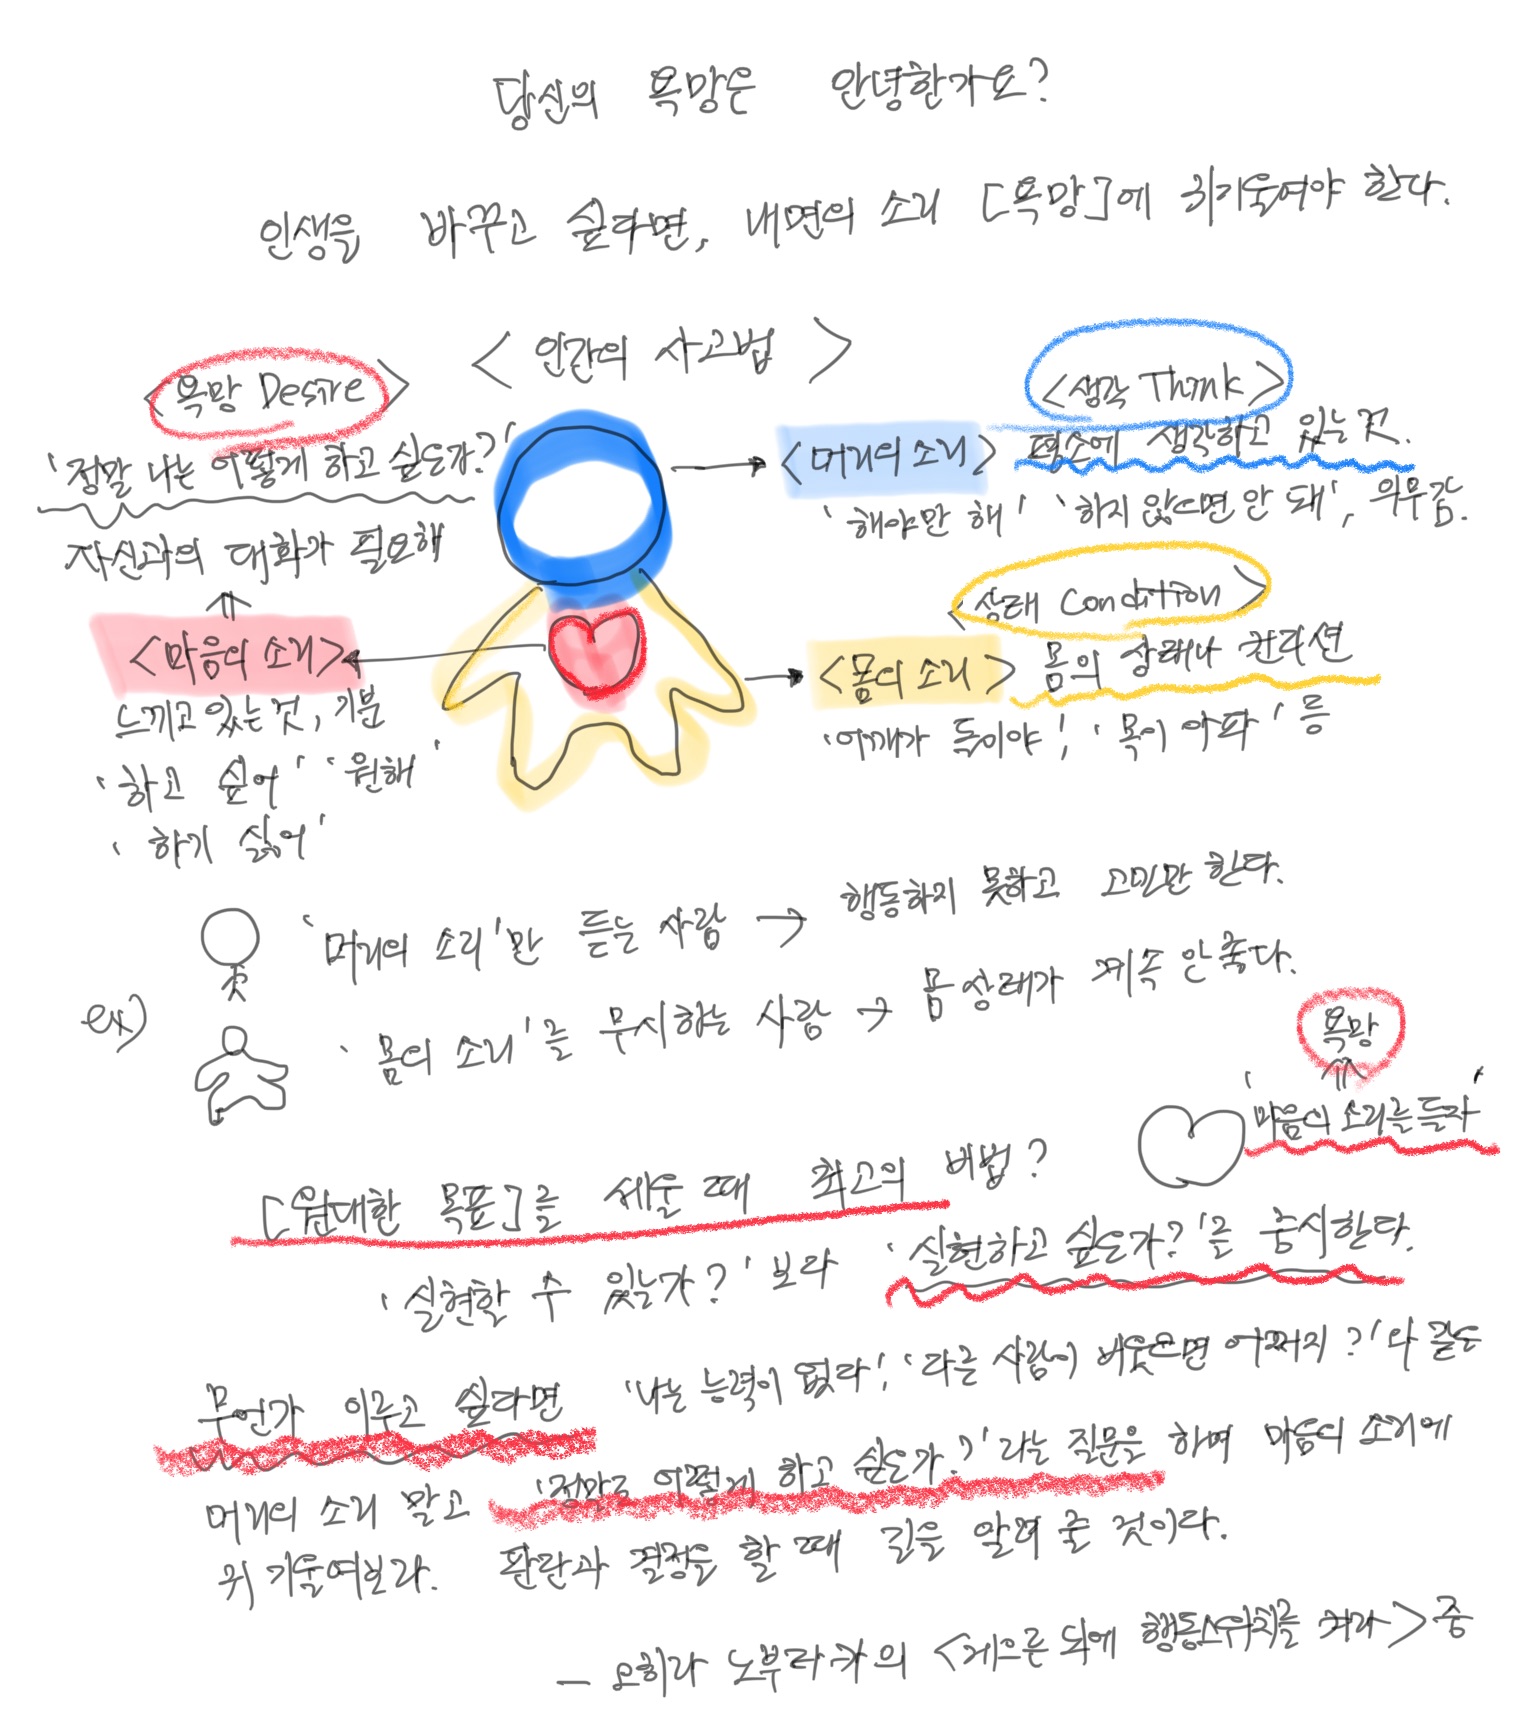 당신의 욕망은 안녕한가요?
인생을 바꾸고 싶다면, 내면의 소리 [욕망]에 귀기울여야 한다.
< 인간의 사고법 >
<욕망 Desire>
'정말 나는 어떻게 하고 싶은가?'
자신과의 대화가 필요해
<마음의 소리>
느끼고 있는 것, 기분
'하고 싶어' '원해'
'하기 싫어'
<생각 Think>
<머리의 소리> 평소에 생각하고 있는 것.
'해야만 해' '하지 않으면 안 돼', 의무감.
<상태 Condition>
<몸의 소리> 몸의 상태나 컨디션
'어깨가 뭉이야!, '목이 아파' 등
ex)
'머리의 소리'만 듣는 사람 → 행동하지 못하고 고민만 한다.
'몸의 소리'를 무시하는 사람 → 몸 상태가 계속 안 좋다.
욕망
'마음의 소리를 듣자'
[원대한 목표]를 세울 때 최고의 비법?
'실현할 수 있는가?' 보다 '실현하고 싶은가?'를 중시한다.
무언가 이루고 싶다면 '나는 능력이 없다!, '다른 사람이 비웃으면 어쩌지?'와 같은
머리의 소리 말고 '정말로 어떻게 하고 싶은가?'라는 질문을 하며 마음의 소리에
귀 기울여보라. 판단과 결정을 할 때 길을 알려 줄 것이다.
- 오히라 노부타카의 <게으른 뇌에 행동스위치를 켜라> 중